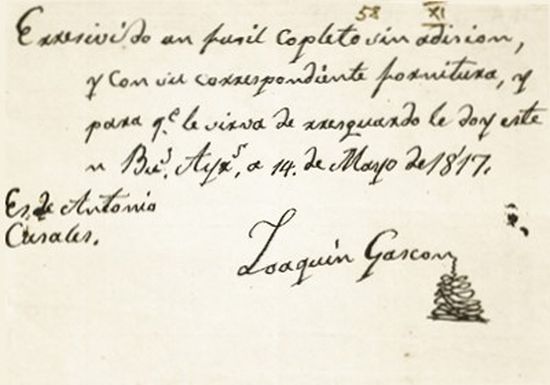 58 XI
Erresivido un fusil copleto sin adision,
y con su correspondiente fornitura, y
para q.e le sirva de rresguardo le doy este
n Bu.s Ayr.s, a 14. de Mayo de 1817.
Es. de Antonio
Casales.
Joaquin Gascon